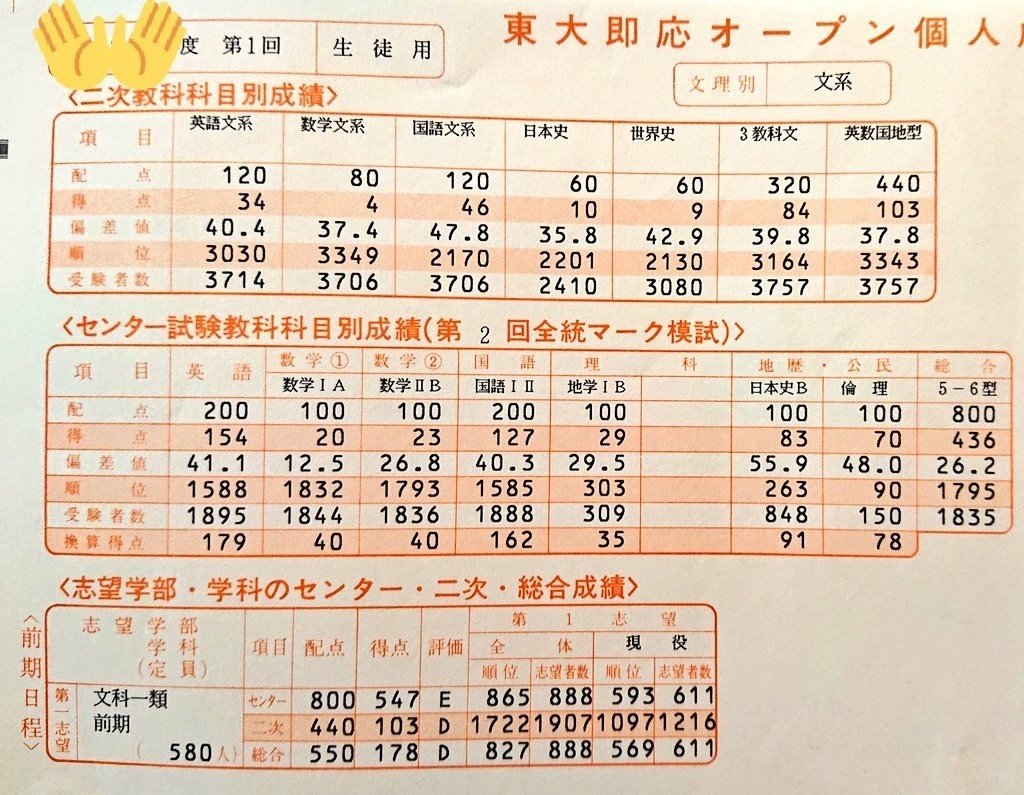 度 第1回 生徒用
東大即応オープン個人
文理別 文系
<二次教科科目別成績>
項目 英語文系 数学文系 国語文系 日本史 世界史 3教科文 英数国地型
配点 120 80 120 60 60 320 440
得点 34 4 46 10 9 84 103
偏差値 40.4 37.4 47.8 35.8 42.9 39.8 37.8
順位 3030 3349 2170 2201 2130 3164 3343
受験者数 3714 3706 3706 2410 3080 3757 3757
<センター試験教科科目別成績(第 2 回全統マーク模試)>
項目 英語 数学① 数学② 国語 理科 地歴・公民 総合
数学ⅠA 数学ⅡB 国語ⅠⅡ 地学ⅠB 日本史B 倫理 5-6型
配点 200 100 100 200 100 100 100 800
得点 154 20 23 127 29 83 70 436
偏差値 41.1 12.5 26.8 40.3 29.5 55.9 48.0 26.2
順位 1588 1832 1793 1585 303 263 90 1795
受験者数 1895 1844 1836 1888 309 848 150 1835
換算得点 179 40 40 162 35 91 78
<志望学部・学科のセンター・二次・総合成績>
<前期日程>
志望学部 学科 (定員) 項目 配点 得点 評価 第1志望
全体 現役
順位 志望者数 順位 志望者数
第一志望 文科一類 センター 800 547 E 865 888 593 611
前期 二次 440 103 D 1722 1907 1097 1216
(580人) 総合 550 178 D 827 888 569 611